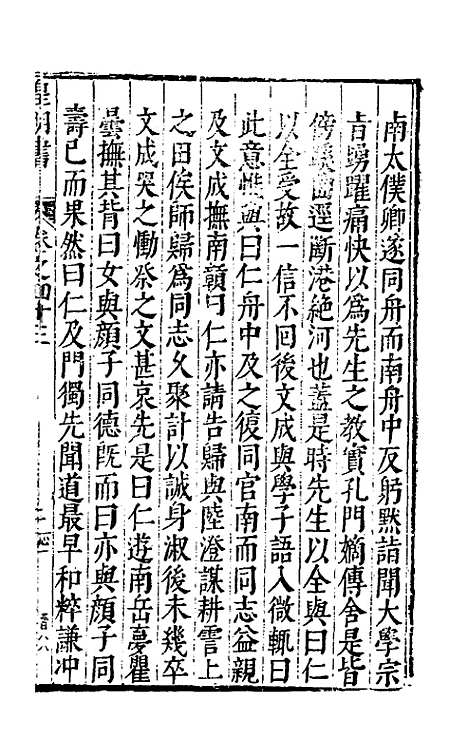 南太僕卿遂同舟而南舟中反躬默諳聞大學宗
旨踴躍痛快以為先生之教實孔門嫡傳舍是皆
傍蹊曲逕斷港絶河也蓋是時先生以全與曰仁
以全受故一信不回後文成與學子語入微輒曰
此意惟與曰仁舟中及之復同官南而同志益親
及文成撫南贛曰仁亦請告歸與陸澄謀耕霅上
之田俟師歸為同志久聚計以誠身淑後未幾卒
文成哭之慟祭之文甚哀先是曰仁遊南岳夢瞿
曇撫其背曰女與顔子同德旣而曰亦與顔子同
壽已而果然曰仁及門獨先聞道最早和粹謙冲
皇明書 卷之四十二